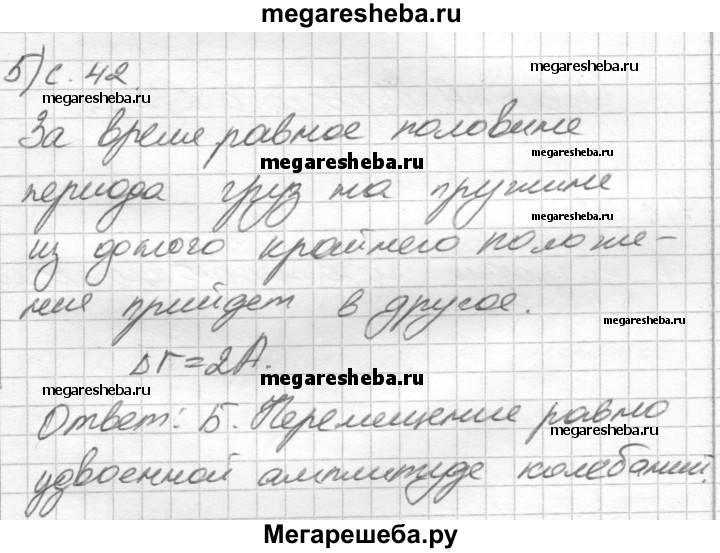 megaresheba.ru
5) с. 42.
megaresheba.ru
megaresheba.ru
За время равное половине
megaresheba.ru
megaresheba.ru
периода груз на пружине
megaresheba.ru
из одного крайнего положе-
ния прийдет в другое.
megaresheba.ru
Δr = 2A.
megaresheba.ru
megaresheba.ru
Ответ: Б. Перемещение равно
megaresheba.ru
удвоенной амплитуде колебаний.
Мегарешеба.ру